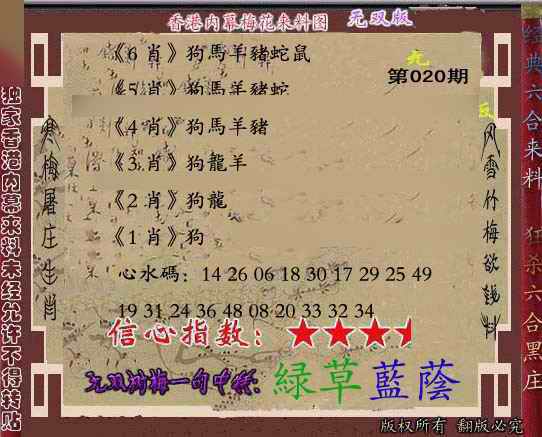 香港内幕梅花来料图 无双版
第020期
《6 肖》狗馬羊豬蛇鼠
《5 肖》狗馬羊豬蛇
《4 肖》狗馬羊豬
《3 肖》狗龍羊
《2 肖》狗龍
《1 肖》狗
心水碼：14 26 06 18 30 17 29 25 49
19 31 24 36 48 08 20 33 32 34
信心指数：
緑草藍蔭
独家香港内幕来料未经允许不得转贴
寒梅屠庄生肖
风雪竹梅欲钱料
经典六合来料
狂杀六合黑庄
版权所有 翻版必究